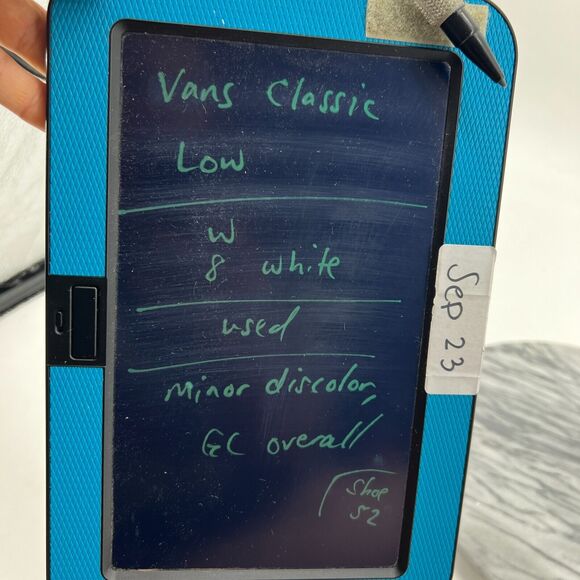 Vans Classic
Low
W
8 white
used
minor discolor,
GC overall
Shoe
S2
Sep 23